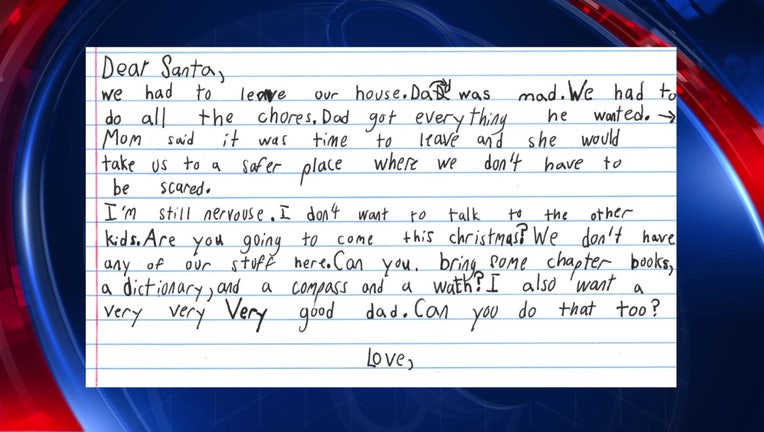 Dear Santa,
we had to leave our house. Dad was mad. We had to
do all the chores. Dad got everything he wanted. →
Mom said it was time to leave and she would
take us to a safer place where we don't have to
be scared.
I'm still nervouse. I don't want to talk to the other
kids. Are you going to come this christmas? We don't have
any of our stuff here. Can you. bring some chapter books,
a dictionary, and a compass and a wath? I also want a
very very very good dad. Can you do that too?
Love,